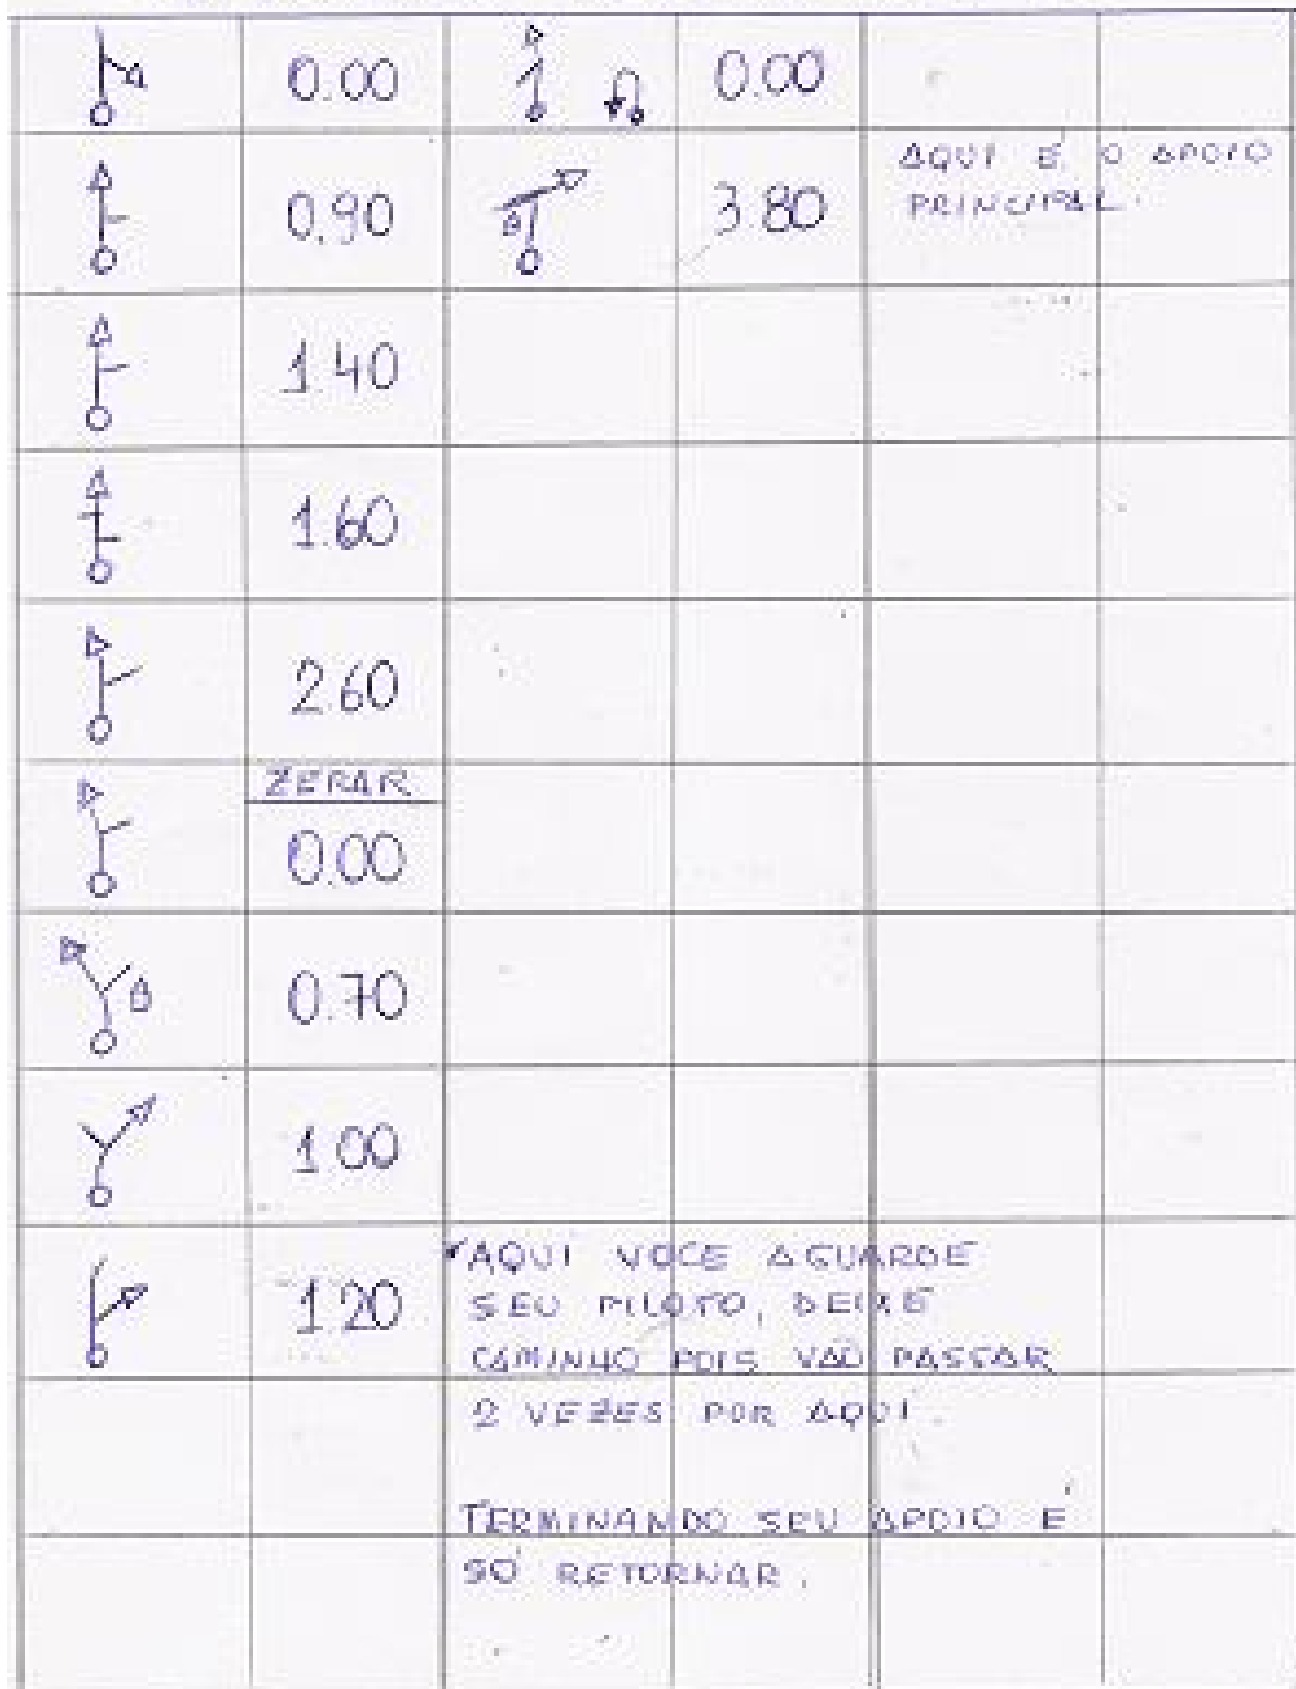 0.00 0.00
0.90 3.80 AQUI E O APOIO
PRINCIPAL.
1.40
1.60
2.60
ZERAR
0.00
0.70
1.00
1.20 AQUI VOCE AGUARDE
SEU PILOTO, DEIXE
CAMINHO POIS VÃO PASSAR
2 VEZES POR AQUI.
TERMINANDO SEU APOIO E
SO RETORNAR.